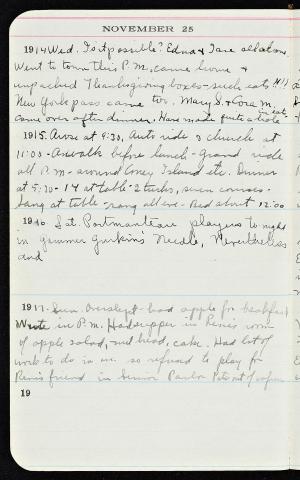 NOVEMBER 25
1914 Wed. Is it possible? Edna & I are all alone.
Went to town this P.M., came home &
unpacked Thanksgiving boxes - such eats !!!!
New York pass came too. Mary S. & Cora M.
came over after dinner. Have made quite a
1915. Arose at 9:30, Auto ride & church at
11:00 - A walk before lunch - Grand ride
all P.M. - around Coney Island etc. Dinner
at 5:30 - 14 at table - 2 turks, seven courses -
Sang at table - sang all eve - Bed about 12:00
1916 Sat. Portmanteau players to night
in gammer gurkin's needle, Nevertheless
and
1917. Sun. Overslept - had apple for breakfast
Wrote in P.M. Had supper in Rene's room
of apple salad, nut bread, cake. Had lot of
work to do in eve. so refused to play for
Rene's friend in Senior Parlor
19